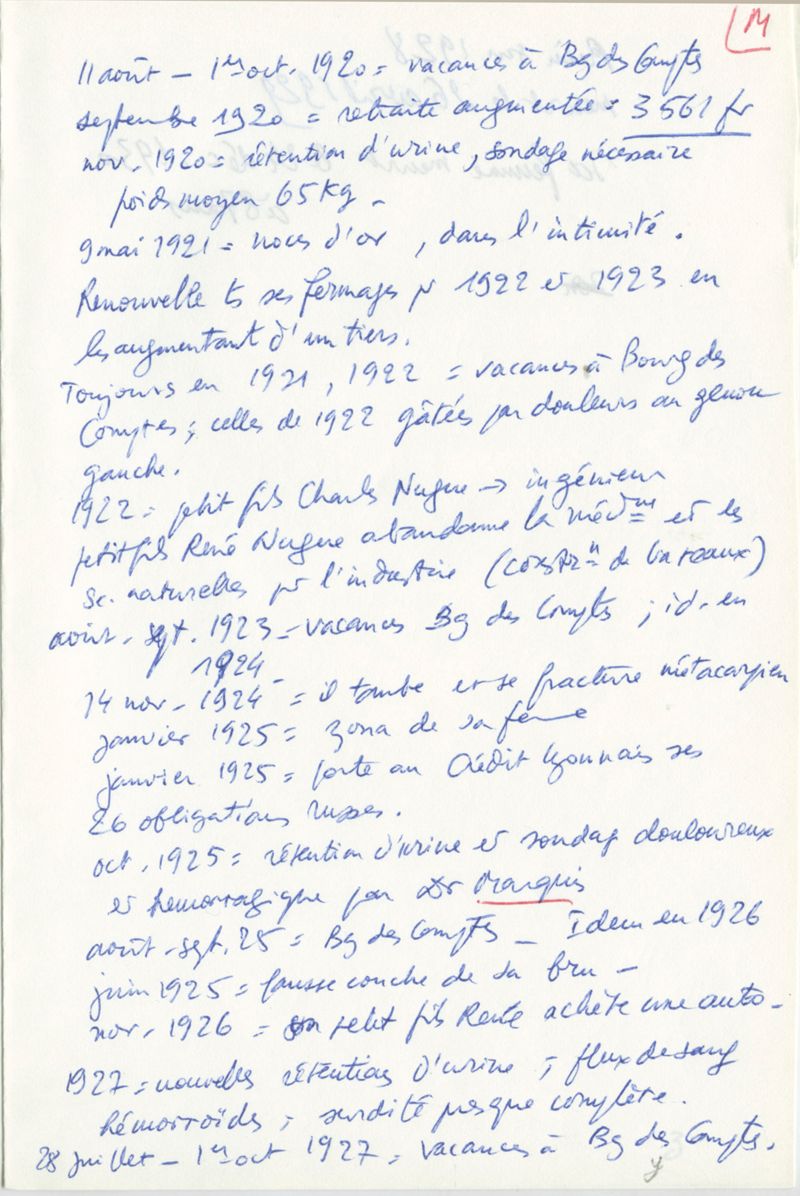 M
11 août – 1er oct. 1920 = vacances à Bg des Comptes
septembre 1920 = retraite augmentée = 3 561 fr
nov. 1920 = rétention d'urine, sondage nécessaire
poids moyen 65 Kg –
9 mai 1921 = noces d'or, dans l'intimité.
Renouvelle ts ses fermages pr 1922 et 1923 en
les augmentant d'un tiers.
Toujours en 1921, 1922 = vacances à Bourg des
Comptes ; celles de 1922 gâtées par douleurs au genou
gauche.
1922 = petit fils Charles Nugue → ingénieur
petit fils René Nugue abandonne la médne et les
Sc. naturelles pr l'industrie (constron de bateaux)
août - sept. 1923 = vacances Bg des Comptes ; id. en
1924 –
14 nov. 1924 = il tombe et se fracture métacarpien
janvier 1925 = zona de sa femme
janvier 1925 = porte au Crédit Lyonnais ses
26 obligations russes.
oct. 1925 = rétention d'urine et sondage douloureux
et hémorragique par Dr Marquis
août - sept. 25 = Bg des Comptes – Idem en 1926
juin 1925 = fausse couche de sa bru –
nov. 1926 = son petit fils René achète une auto –
1927 = nouvelles rétentions d'urine ; flux de sang
hémorroïdes ; surdité presque complète.
28 juillet – 1er oct 1927 = vacances à Bg des Comptes.